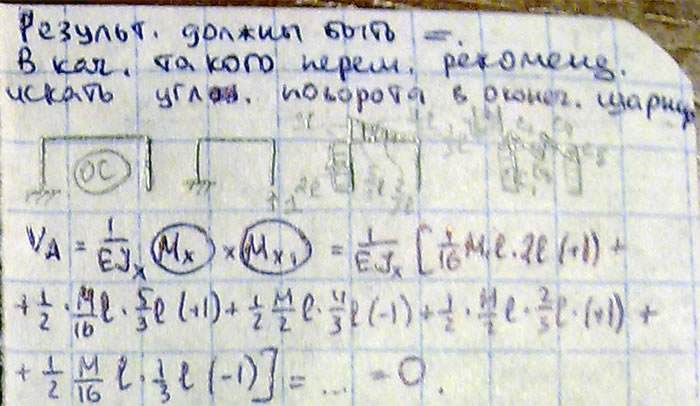 Результ. должны быть =.
В кач. такого перем. рекоменд.
искать углов. поворота в оконеч. шарнир
ОС
V_A = 1/EJ_x (M_x) × (M_x₁) = 1/EJ_x [1/16 M l · 2l (+1) +
+ 1/2 · M/16 l · 5/3 l (+1) + 1/2 M/2 l · 4/3 l (-1) + 1/2 · M/2 l · 2/3 l · (+1) +
+ 1/2 M/16 l · 1/3 l (-1)] = ... = 0.